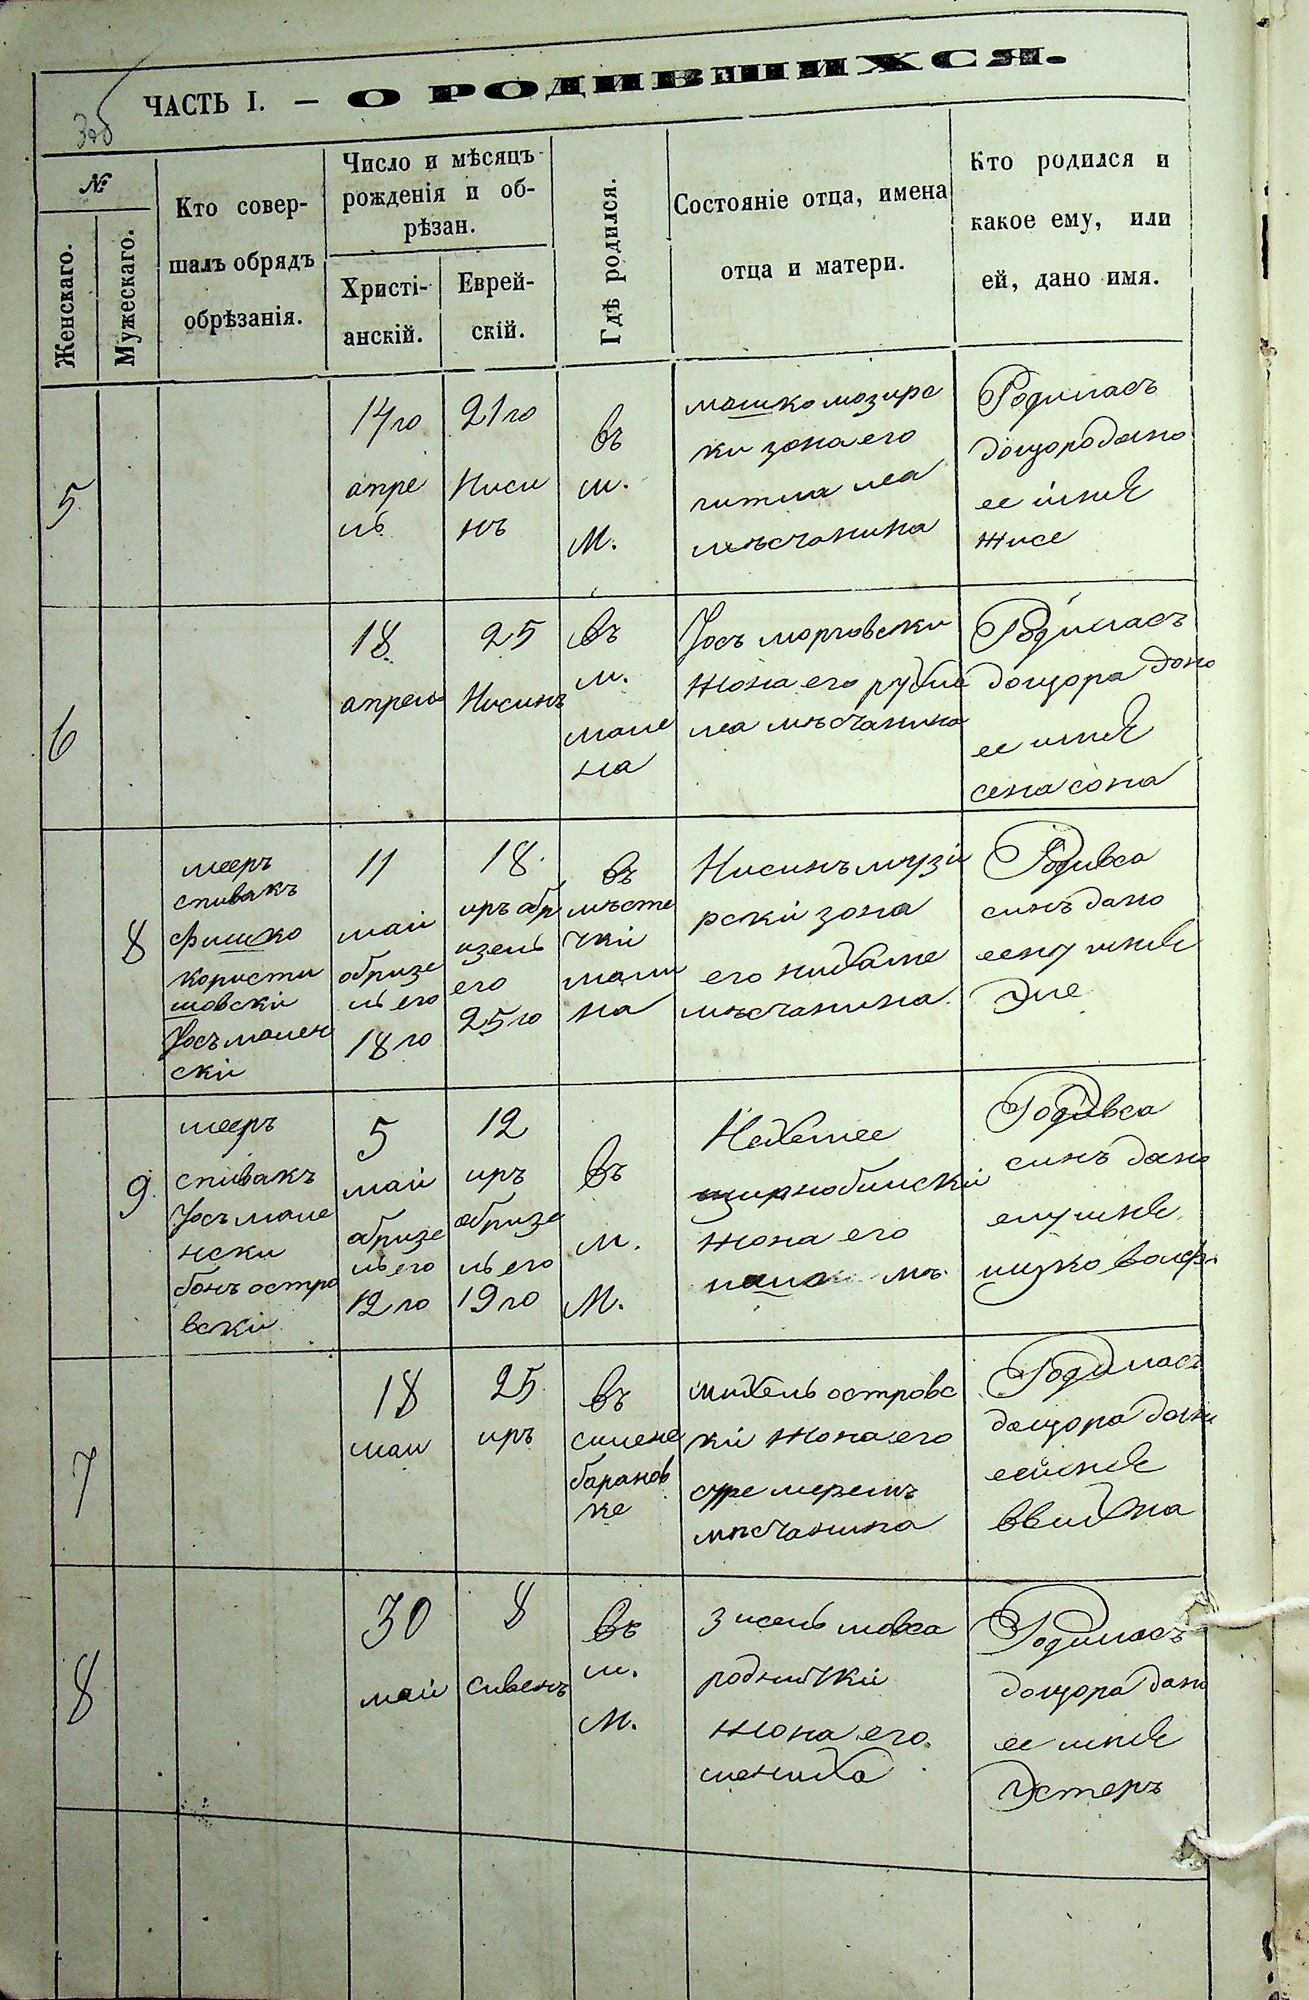 ЧАСТЬ I. — О РОДИВШИХСЯ.
№
Женскаго.
Мужескаго.
Кто совер-
шалъ обрядъ
обрѣзанія.
Число и мѣсяцъ
рожденія и об-
рѣзан.
Христі-
анскій.
Еврей-
скій.
Гдѣ родился.
Состояніе отца, имена
отца и матери.
Кто родился и
какое ему, или
ей, дано имя.
5
14 го
апре
ль
21 го
Ниси
нъ
въ
м.
М.
машко мозирс
ки зона его
гитла леа
мѣсчанина
Родиласъ
доцоро дано
ее імніе
6
18
апрель
25
Нисинъ
въ
м.
мале
на
Іось морговски
жона его рухле
леа мѣсчанина
Родиласъ
доцора дано
ее имніе
сена сона
8
мееръ
спивакъ
фишко
користи
шовскі
Іосъ мален
скі
11
май
обризе
ль его
18 го
18
иръ обр
изель
его
25 го
въ
мѣсте
чкі
мали
на
Нисинъ музи
рскі зона
его нихаме
мѣсчанина
Родивса
синъ дано
еену имніе
Эле
9
мееръ
співакъ
Іосъ мале
нски
бонъ остро
вскі
5
май
обризе
ль его
12 го
12
иръ
обризе
ль его
19 го
въ
м.
М.
Нехемее
жона его
мѣ
Родивса
синъ дано
ему имніе
ицко волф
7
18
маи
25
иръ
въ
силене
баранов
ке
михель островс
кі жона его
суре меремъ
мѣсчанина
Родиласъ
доцора дано
ее имніе
8
30
май
8
сивенъ
въ
м.
М.
Зисель мовса
родниткі
жона его
шениха
Родиласъ
доцора дано
ее имніе
Эстеръ